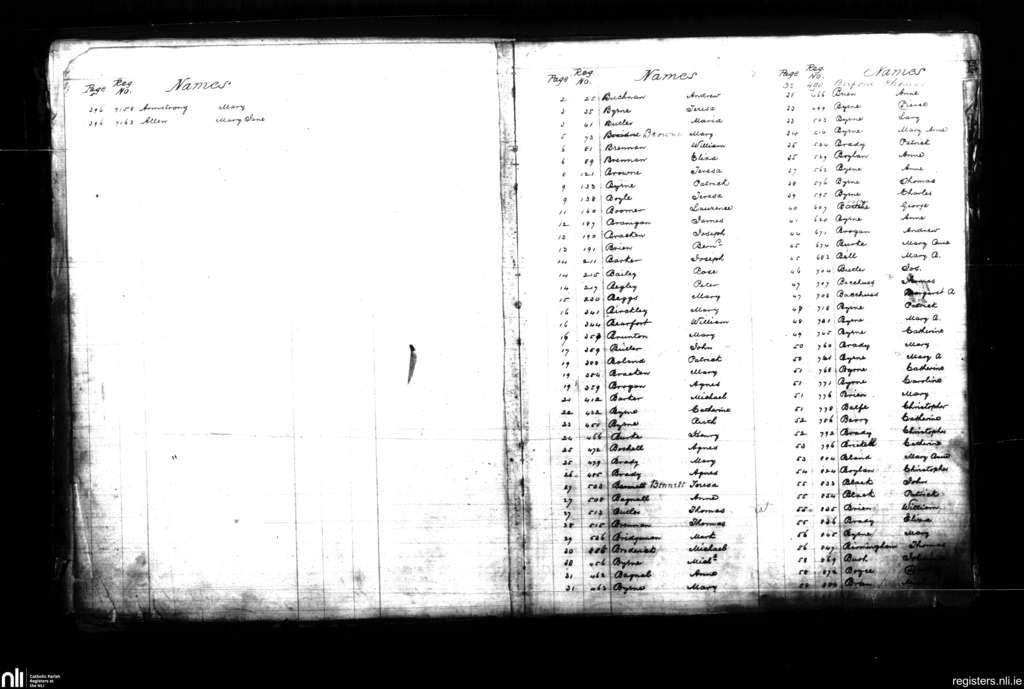 Page Reg. No. Names
296 7158 Armstrong Mary
296 7163 Allen Mary Jane
Page Reg. No. Names
2 25 Buchnan Andrew
2 35 Byrne Teresa
3 41 Butler Maria
5 73 Browne Mary
6 81 Brennan William
6 89 Brennan Eliza
8 121 Browne Teresa
9 133 Byrne Patrick
9 138 Boyle Teresa
11 160 Boomer Laurence
12 187 Branigan James
13 190 Bracken Joseph
13 191 Brien Bern.d
14 211 Barker Joseph
14 215 Bailey Rose
14 217 Begley Peter
15 230 Beggs Mary
16 241 Binckley Mary
16 244 Bearfort William
16 Brunton Mary
17 259 Butler John
19 Boland Patrick
19 Bracken Mary
19 Brogan Agnes
21 412 Barker Michael
22 432 Byrne Catherine
23 451 Byrne Ruth
24 466 Burke Henry
25 472 Boshell Agnes
25 479 Brady Mary
26 Brady Agnes
27 503 Bennett Teresa
27 508 Bagnall Anne
27 513 Butler Thomas
28 515 Brennan Thomas
29 526 Bridgeman Mark
30 Broderick Michael
30 456 Byrne Mich.l
31 462 Bagnal Anne
31 463 Byrne Mary
Page Reg. No. Names
32 490 Thomas
31 466 Brien Anne
33 499 Byrne
33 503 Byrne
34 510 Byrne Mary Anne
35 524 Brady Patrick
35 529 Boylan Anne
37 562 Byrne Anne
38 576 Byrne Thomas
39 595 Byrne Charles
40 607 George
41 620 Byrne Anne
44 671 Brogan Andrew
45 674 Burke Mary Anne
45 683 Bell Mary A.
46 704 Butler Jos.
47 707 Bacchuss Thomas
47 708 Bacchuss Margaret A
47 718 Byrne Patrick
48 721 Byrne Mary A.
49 745 Byrne Catherine
50 760 Brady Mary
50 761 Byrne Mary A
51 768 Byrne Catherine
51 771 Byrne Caroline
51 776 Brien Mary
51 778 Balfe Christopher
52 786 Berry Catherine
52 792 Brady Christopher
53 796 Catherine
53 804 Bland Mary Anne
54 824 Boylan Christopher
55 833 Black John
55 834 Black Patrick
55 835 Brien William
55 836 Brady Eliza
56 845 Byrne Mary
56 847 Birmingham Thomas
58 869 Bush
58 872 Boyce
Bran
nli
Catholic Parish
Registers at
the NLI
registers.nli.ie